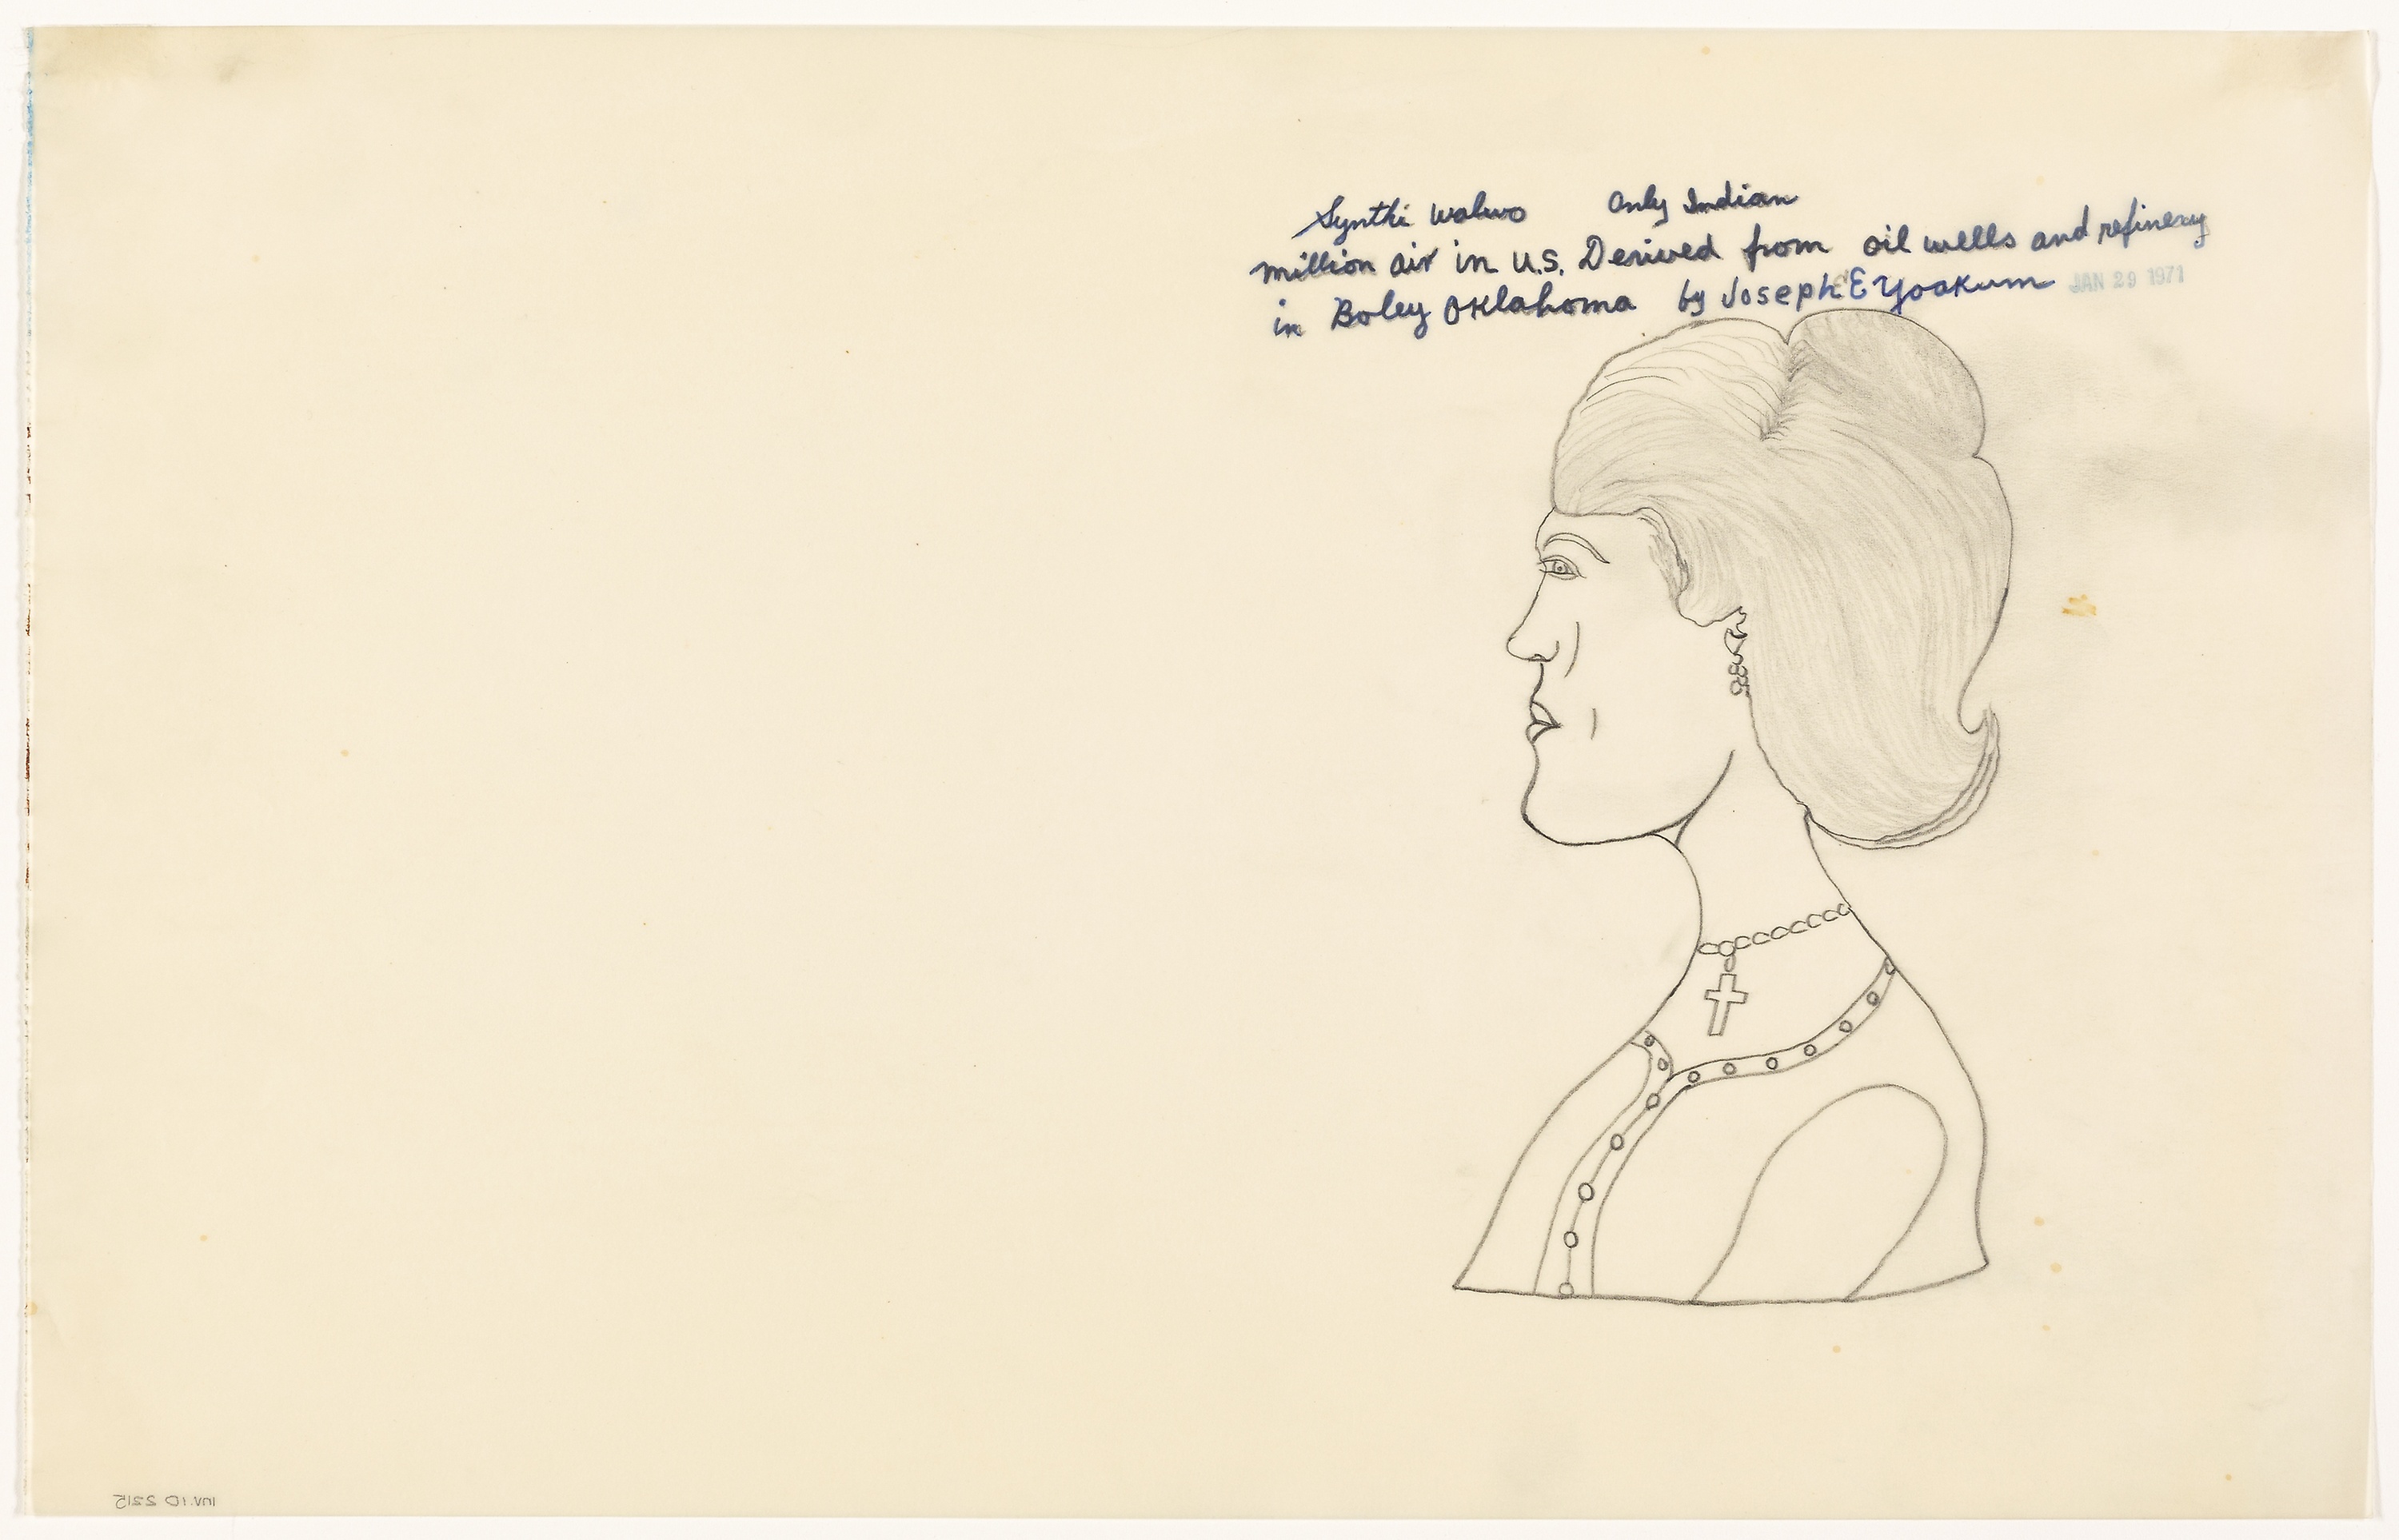 Synthi Walwo Only Indian
million air in U.S. Derived from oil wells and refinery
in Boley Oklahoma by Joseph E Yoakum JAN 29 1971
INV.ID 2215